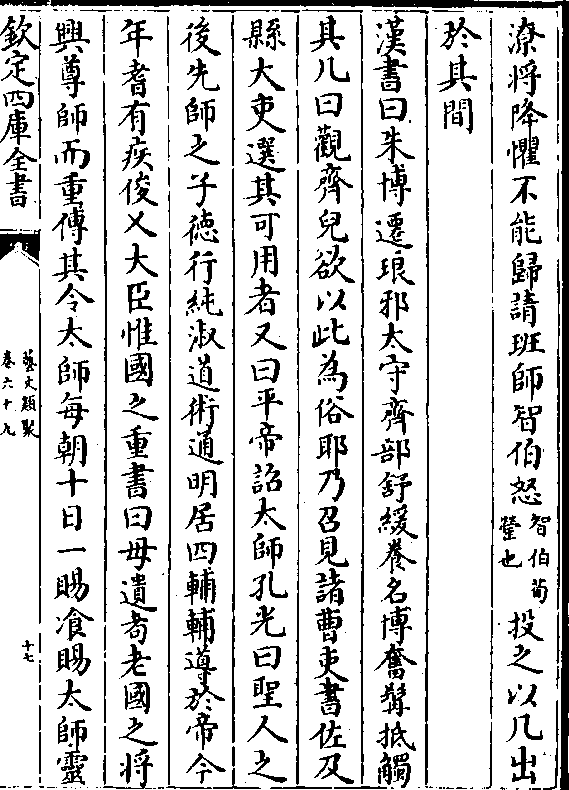 潦將降懼不能歸請班師智伯怒智伯荀罃也投之以几出
於其間
漢書曰朱博遷琅邪太守齊部舒緩養名博奮髯抵觸
其几曰觀齊兒欲以此為俗耶乃召見諸曹吏書佐及
縣大吏選其可用者又曰平帝詔太師孔光曰聖人之
後先師之子德行純淑道術通明居四輔輔導於帝今
年耆有疾俊乂大臣惟國之重書曰毋遺耇老國之將
興尊師而重傅其令太師每朝十日一賜飡賜太師靈
欽定四庫全書
藝文類聚
卷六十九
十七